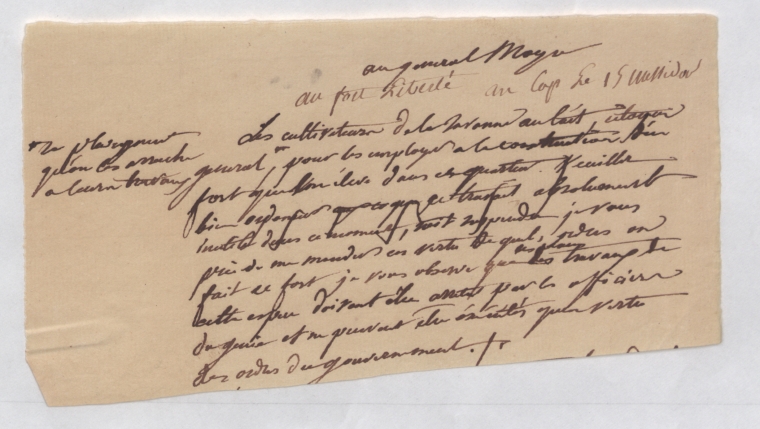 au général Moyse
au fort Liberté au Cap Le 15 Messidor
Les cultivateurs de la Savanne au lait, citoyen
se plaignent
qu'on les arrache
a leurs travaux
général, pour les employer a la construction d'un
fort que l'on élève dans ce quartier. Veuillez
bien ordonner que ce travail absolument
inutile dans ce moment, soit suspendu je vous
prie de me mander en vertu de quels ordres on
fait ce fort, je vous observe que les plans des travaux de
cette espece doivent être arretés par les officiers
du genie et ne peuvent être exécutés qu'en vertu
des ordres du gouvernement.